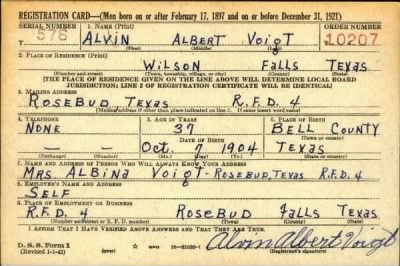 REGISTRATION CARD—(Men born on or after February 17, 1897 and on or before December 31, 1921)
SERIAL NUMBER 1. NAME (Print) ORDER NUMBER
576 ALVIN ALBERT VOIGT 10207
(First) (Middle) (Last)
2. PLACE OF RESIDENCE (Print)
WILSON FALLS TEXAS
(Number and street) (Town, township, village, or city) (County) (State)
[THE PLACE OF RESIDENCE GIVEN ON THE LINE ABOVE WILL DETERMINE LOCAL BOARD
JURISDICTION; LINE 2 OF REGISTRATION CERTIFICATE WILL BE IDENTICAL]
3. MAILING ADDRESS
ROSEBUD TEXAS R.F.D. 4
[Mailing address if other than place indicated on line 2. If same insert word same]
4. TELEPHONE 5. AGE IN YEARS 6. PLACE OF BIRTH
NONE 37 BELL COUNTY
DATE OF BIRTH (Town or county)
— — OCT. 7 1904 TEXAS
(Exchange) (Number) (Mo.) (Day) (Yr.) (State or country)
7. NAME AND ADDRESS OF PERSON WHO WILL ALWAYS KNOW YOUR ADDRESS
MRS. ALBINA VOIGT-ROSEBUD, TEXAS R.F.D. 4
8. EMPLOYER'S NAME AND ADDRESS
SELF
9. PLACE OF EMPLOYMENT OR BUSINESS
R.F.D. 4 ROSEBUD FALLS TEXAS
(Number and street or R. F. D. number) (Town) (County) (State)
I AFFIRM THAT I HAVE VERIFIED ABOVE ANSWERS AND THAT THEY ARE TRUE.
D. S. S. Form 1
(Revised 1-1-42) Alvin Albert Voigt
(Registrant's signature)